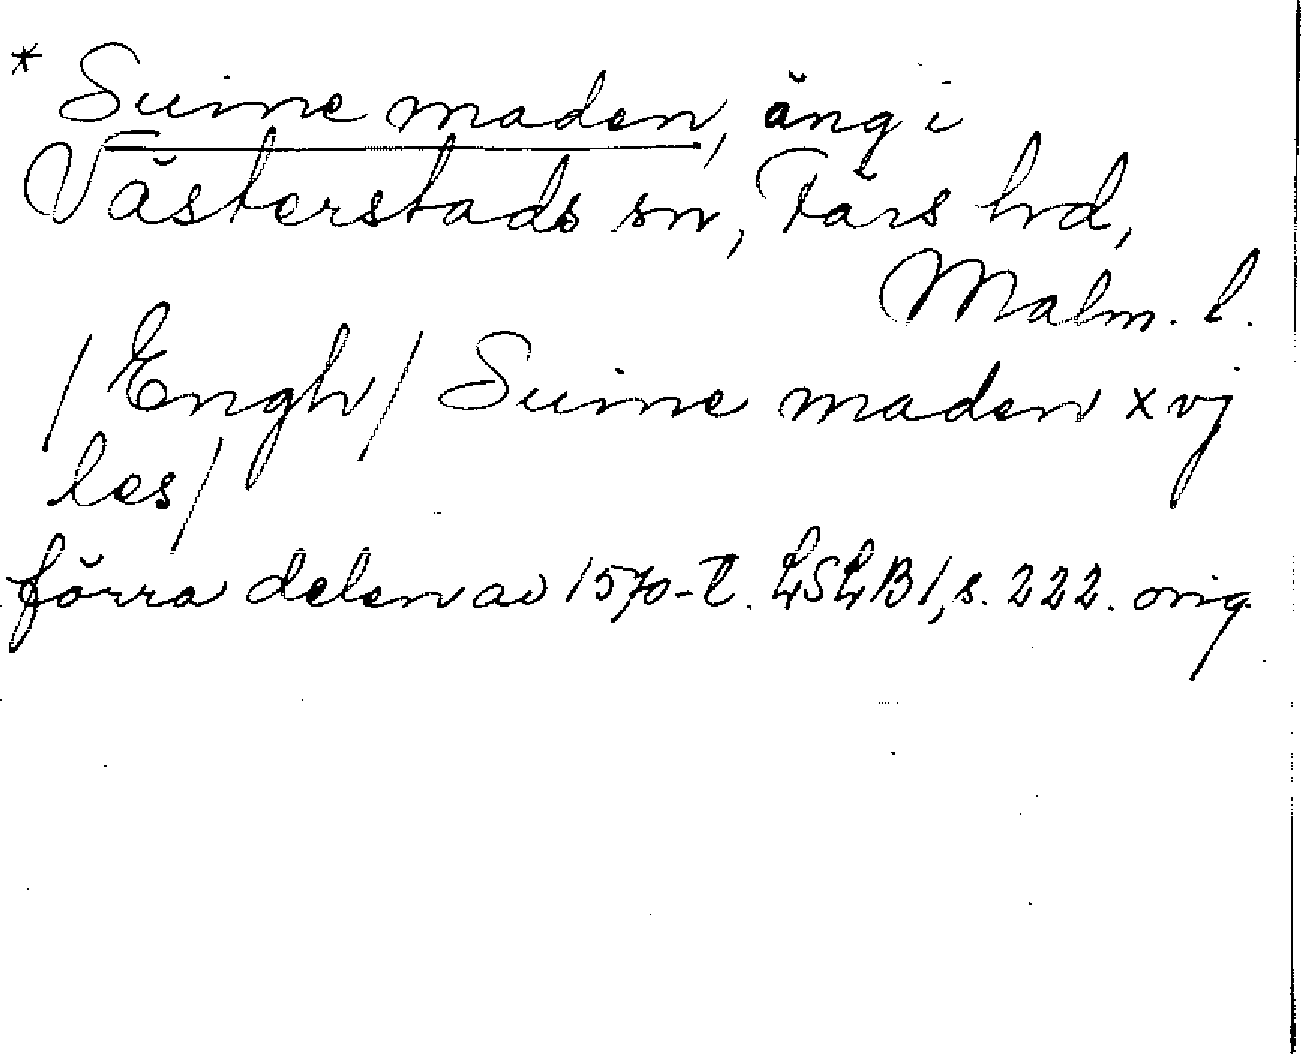 * Suine maden, äng i
Västerstads sn, Färs hd,
Malm. l.
/Engh/ Suine maden xvj
les/
förra delen av 1570-t. LSLB 1, s. 222. orig.